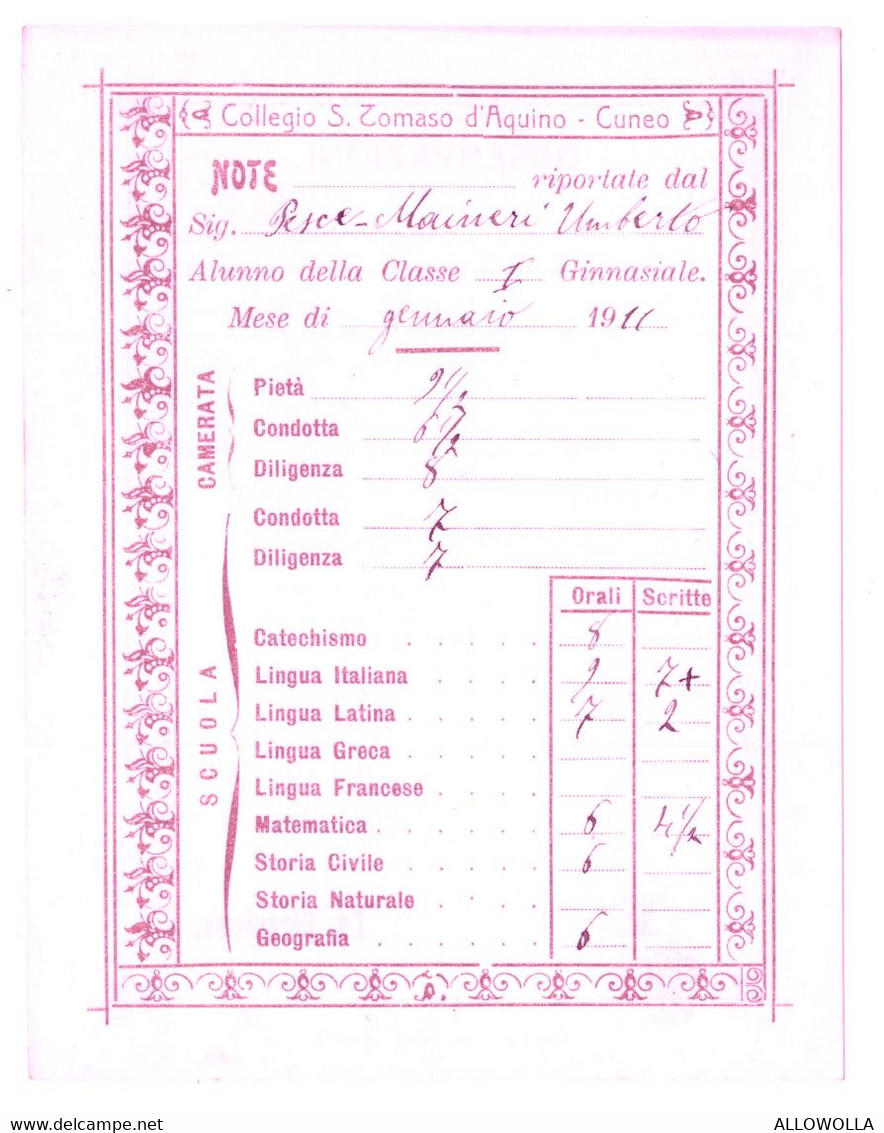 Collegio S. Tomaso d'Aquino - Cuneo
NOTE riportate dal
Sig. Pesce-Maineri Umberto
Alunno della Classe I Ginnasiale.
Mese di gennaio 1911
CAMERATA
Pietà 9 1/2
Condotta 6 1/2
Diligenza 8
SCUOLA
Condotta 7
Diligenza 7
Orali Scritte
Catechismo 8
Lingua Italiana 9 7+
Lingua Latina 7 2
Lingua Greca
Lingua Francese
Matematica 6 4 1/2
Storia Civile 6
Storia Naturale
Geografia 6
www.delcampe.net ALLOWOLLA